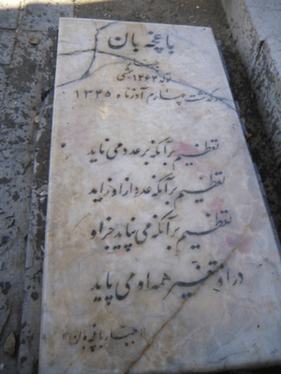 باغچه بان
تولد ۱۲۶۴ شمسی
درگذشت چهارم آذرماه ۱۳۴۵
تعظیم بر آنکه در عدد می ناید
تعظیم بر آنکه عدد از او زاید
تعظیم بر آنکه می نپاید جز او
در او متغیر همه او می پاید
«جبار باغچه بان»